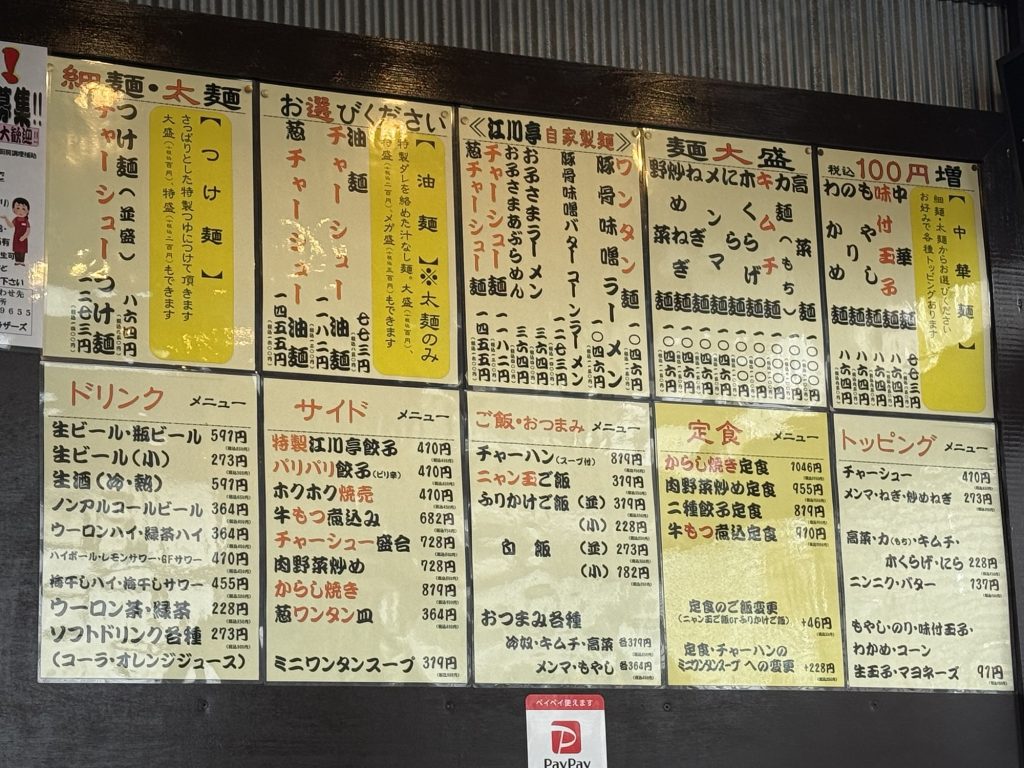 細麺・太麺
お選びください
《江川亭 自家製麺》
麺大盛
税込100円増
【中華麺】
細麺・太麺からお選びください
お好みで各種トッピングあります
中華麺 七七三円
味付玉子麺 八六四円
もやし麺 八六四円
わかめ麺 八六四円
のり麺 八六四円
高菜麺
力麺(もち)
キムチ麺
ホくらげ麺
にら麺
メンマ麺
ねぎ麺
炒めねぎ麺
野菜麺
ワンタン麺 一〇四六円
豚骨味噌ラーメン 一〇四六円
豚骨味噌バターコーンラーメン 一二七三円
お子さまラーメン 三六四円
お子さまあぶらめん 三六四円
チャーシュー麺
葱チャーシュー麺 一四五五円
【油麺】※太麺のみ
特製ダレを絡めた汁なし麺。大盛
メガ盛
もできます
油麺 七七三円
チャーシュー油麺 一一八二円
葱チャーシュー油麺 一四五五円
【つけ麺】
さっぱりとした特製つゆにつけて頂きます
大盛(+税込百円)、特盛(+税込二百円)もできます
つけ麺(並盛) 八六四円
チャーシューつけ麺 一二七三円
ドリンク メニュー
生ビール・瓶ビール 591円
生ビール(小) 273円
生酒(冷・熱) 591円
ノンアルコールビール 364円
ウーロンハイ・緑茶ハイ 364円
ハイボール・レモンサワー・GFサワー 410円
梅干しハイ・梅干しサワー 455円
ウーロン茶・緑茶 228円
ソフトドリンク各種 273円
(コーラ・オレンジジュース)
サイド メニュー
特製江川亭餃子 410円
パリパリ餃子(ピリ辛) 410円
ホクホク焼売 410円
牛もつ煮込み 682円
チャーシュー盛合 728円
肉野菜炒め 728円
からし焼き 819円
葱ワンタン皿 364円
ミニワンタンスープ 319円
ご飯・おつまみ メニュー
チャーハン(スープ付) 819円
ニャン玉ご飯 319円
ふりかけご飯(並) 319円
(小) 228円
白飯(並) 273円
(小) 182円
おつまみ各種
冷奴・キムチ・高菜 各319円
メンマ・もやし 各364円
定食 メニュー
からし焼き定食 1046円
肉野菜炒め定食 955円
二種餃子定食 819円
牛もつ煮込定食 910円
定食のご飯変更
(ニャン玉ご飯orふりかけご飯) +46円
定食・チャーハンの
ミニワンタンスープへの変更 +228円
トッピング メニュー
チャーシュー 410円
メンマ・ねぎ・炒めねぎ 273円
高菜・力(もち)・キムチ・
ホくらげ・にら 228円
ニンニク・バター 137円
もやし・のり・味付玉子・
わかめ・コーン
生玉子・マヨネーズ 91円
募集!!
大歓迎!!
9655
ペイペイ使えます
PayPay